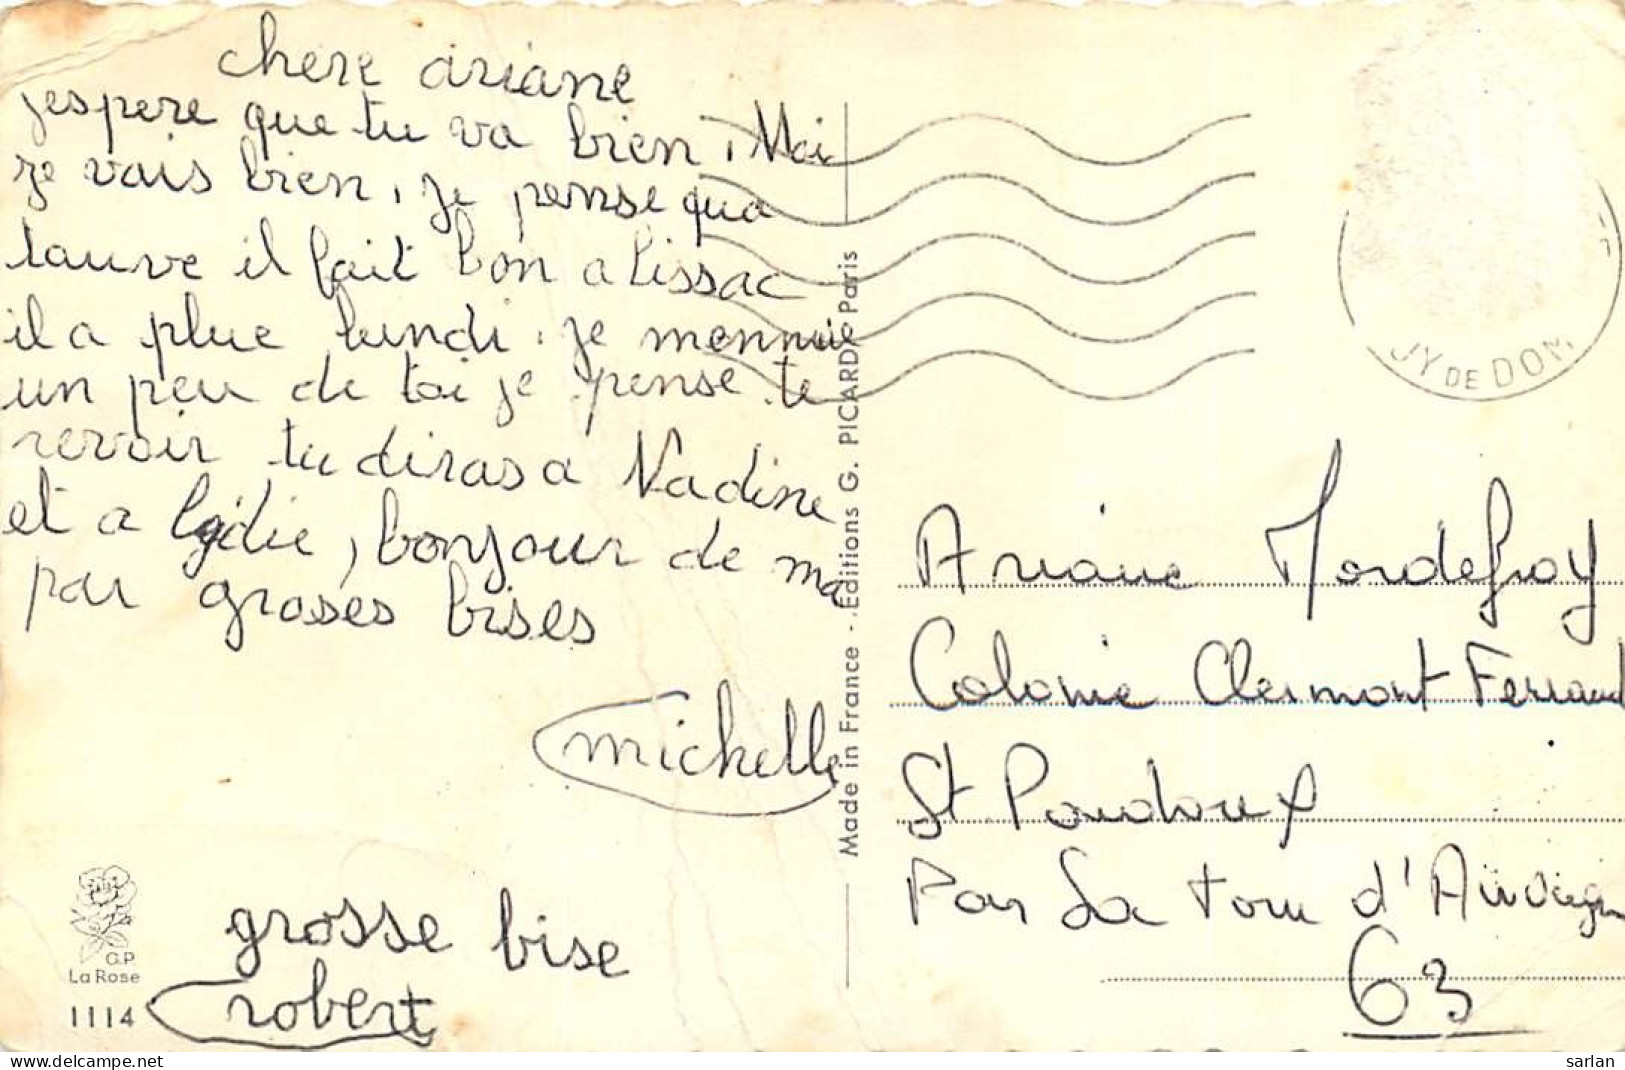 chere ariane
jespere que tu va bien, Moi
je vais bien, je pense qua
tauve il fait bon a lissac
il a plue lundi. je mennuie
un peu de toi je pense te
revoir tu diras a Nadine
et a lydie, bonjour de ma
par groses bises
michelle
grosse bise
robert
G.P.
La Rose
1114
Made in France - Editions G. PICARD - Paris
UY DE DOM
Ariane
Colonie Clermont Ferrand
St Pourdoux
Par La tour d'Auvergne
63
https://www.delcampe.net
sarlan